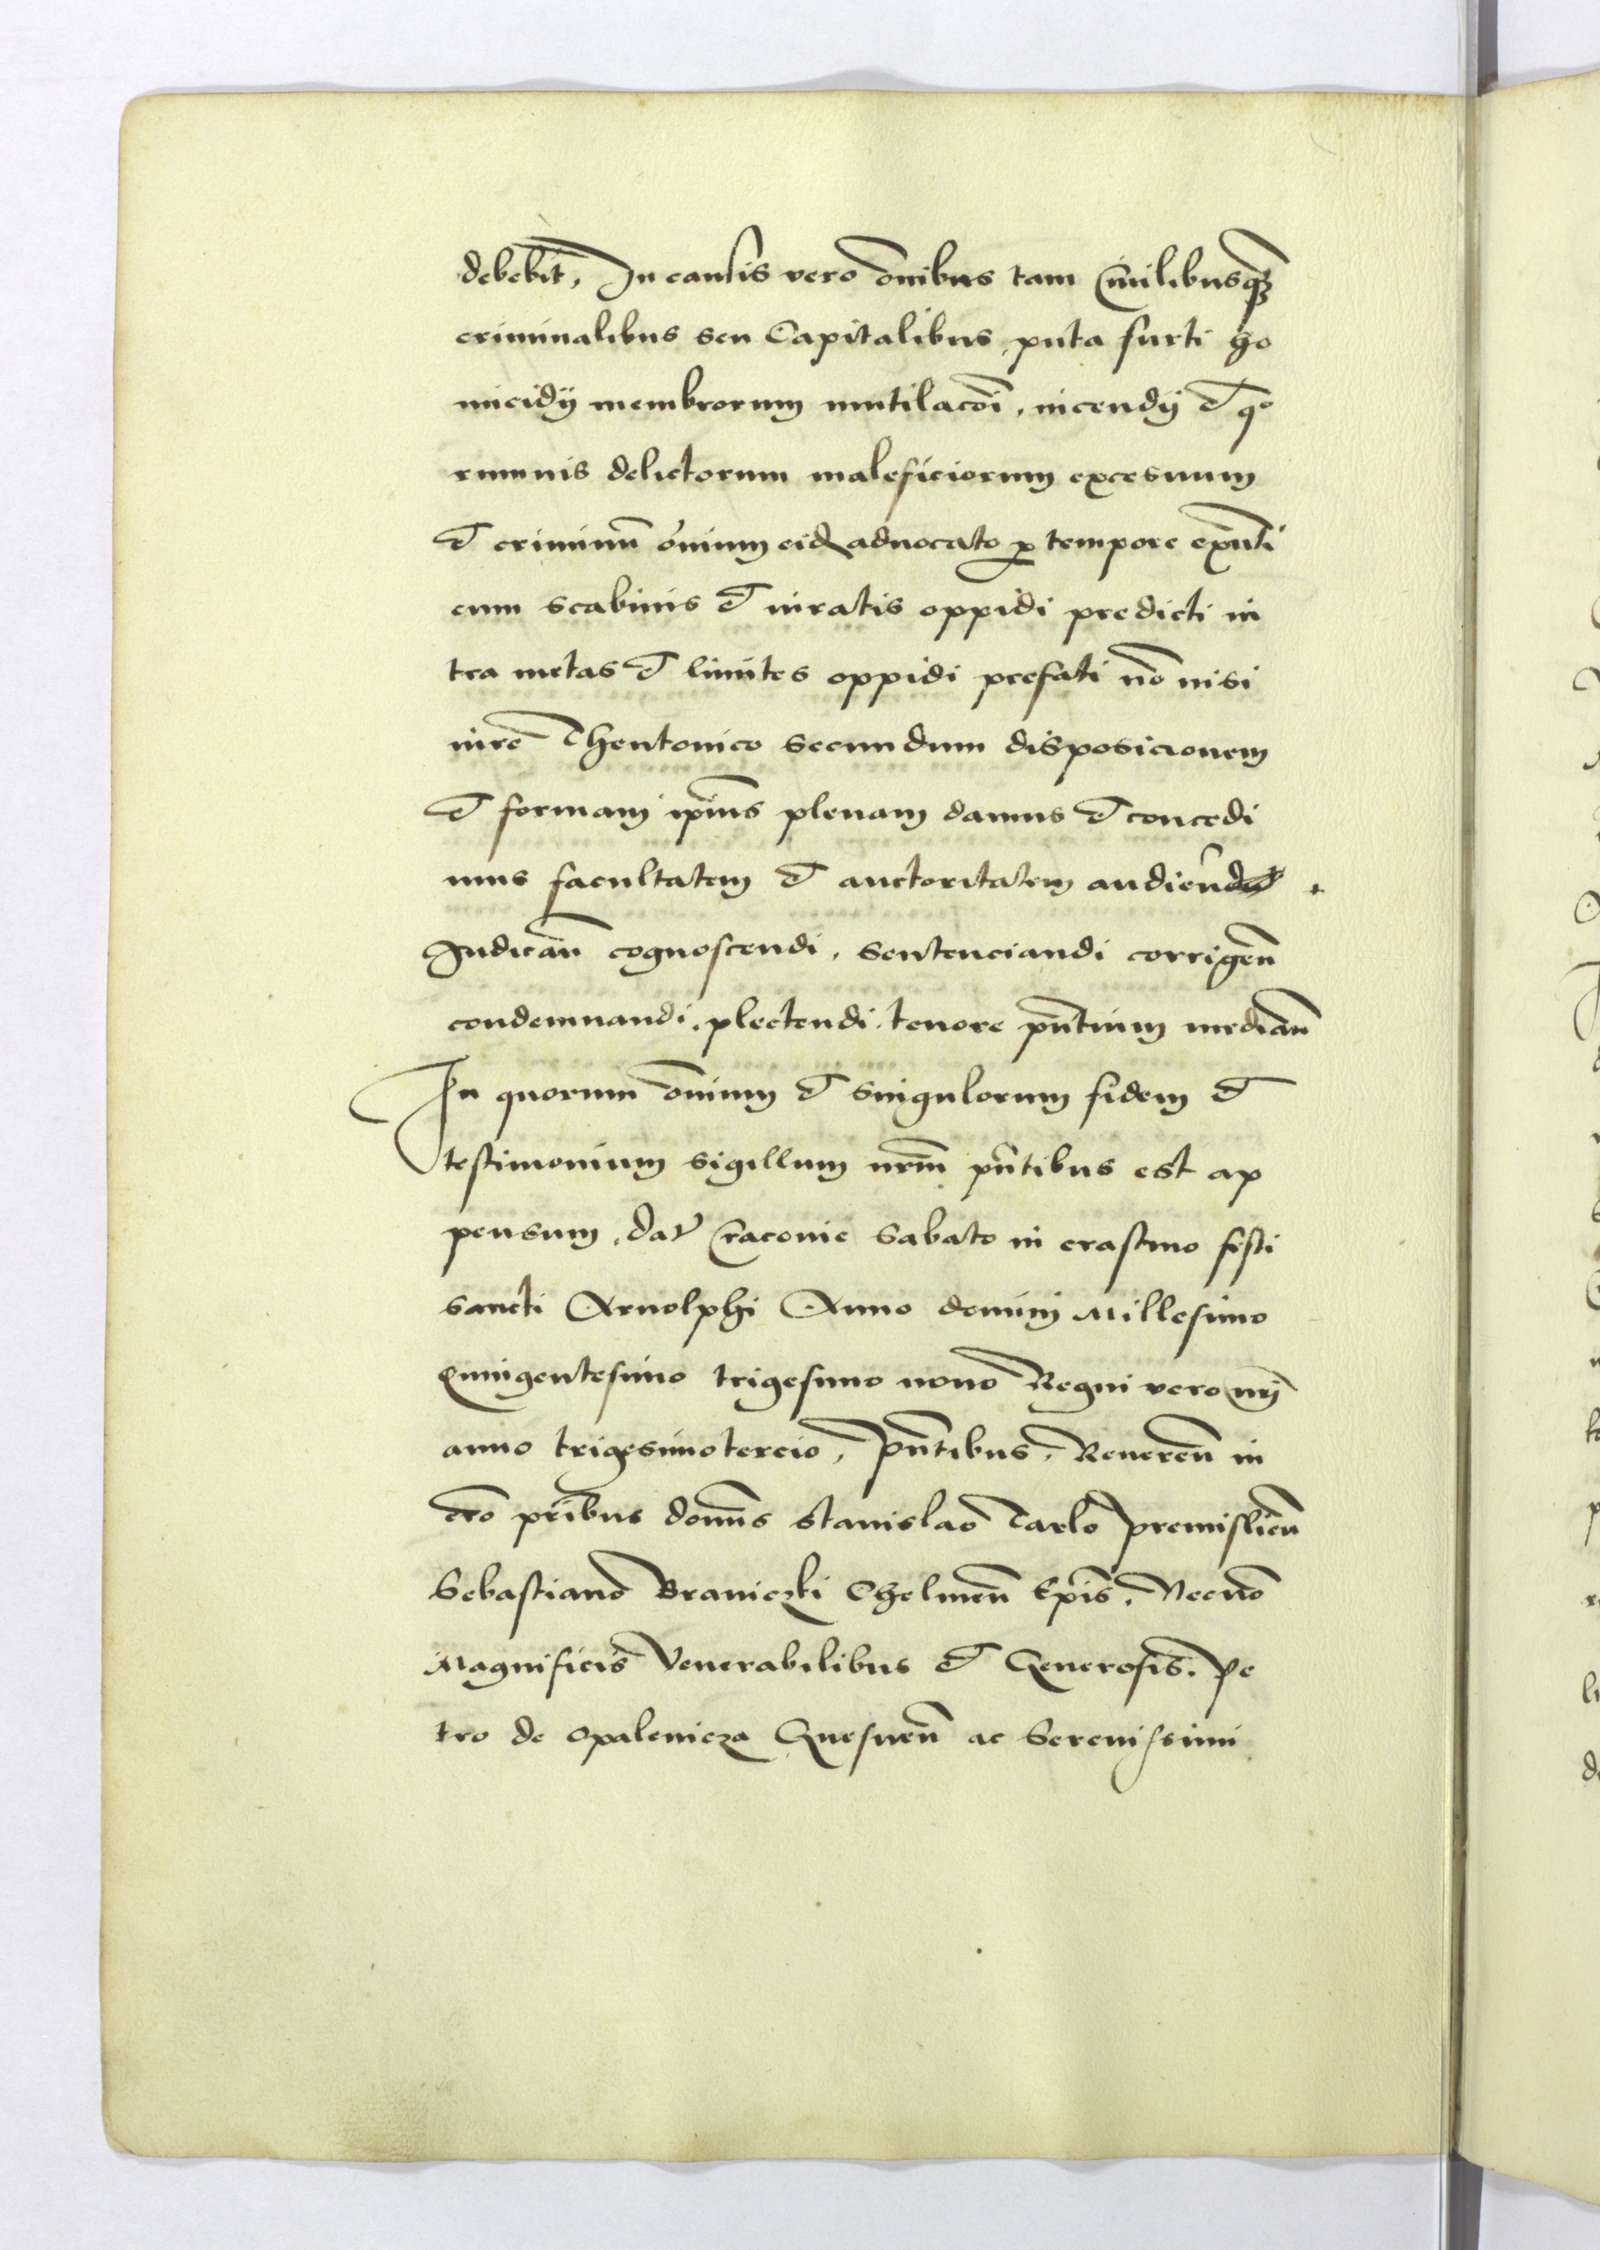 debebit, In causis vero om̄ibus tam Civilibusqȝ
criminalibus seu Capitalibus, puta furti ho
micidij membrorum mutilacōi, incendij et qo
rumvis delictorum maleficiorum excesuum
et criminū om̄ium eidē advocato p tempore exn̄ti
cum scabinis et iuratis oppidi predicti in
tra metas et limites oppidi prefati nō nisi
iure Theutonico secundum disposicionem
et formam ip̄ius plenam damus et concedi
mus facultatem et auctoritatem audiendi
Iudicān cognoscendi, sentenciandi corrigēn
condemnandi, plectendi, tenore pn̄tium mediān
In quorum om̄ium et singulorum fidem et
testimonium sigillum nr̄m pn̄tibus est ap
pensum, dat Cracovie Sabato in crastino festi
sancti Arnolphi Anno domini Millesimo
Quingentesimo trigesimo nono Regni vero nr̄i
anno trigesimotercio, Pn̄tibus, Reverēn in
chro pr̄ibus domīns Stanislao Tarlo Premisliēn
Sebastiano Braniczki Chelmēn Ep̄is, Necnō
Magnificis Venerabilibus et Generosis, Pe
tro de Opalenicza Gnesnēn ac Serenissimi